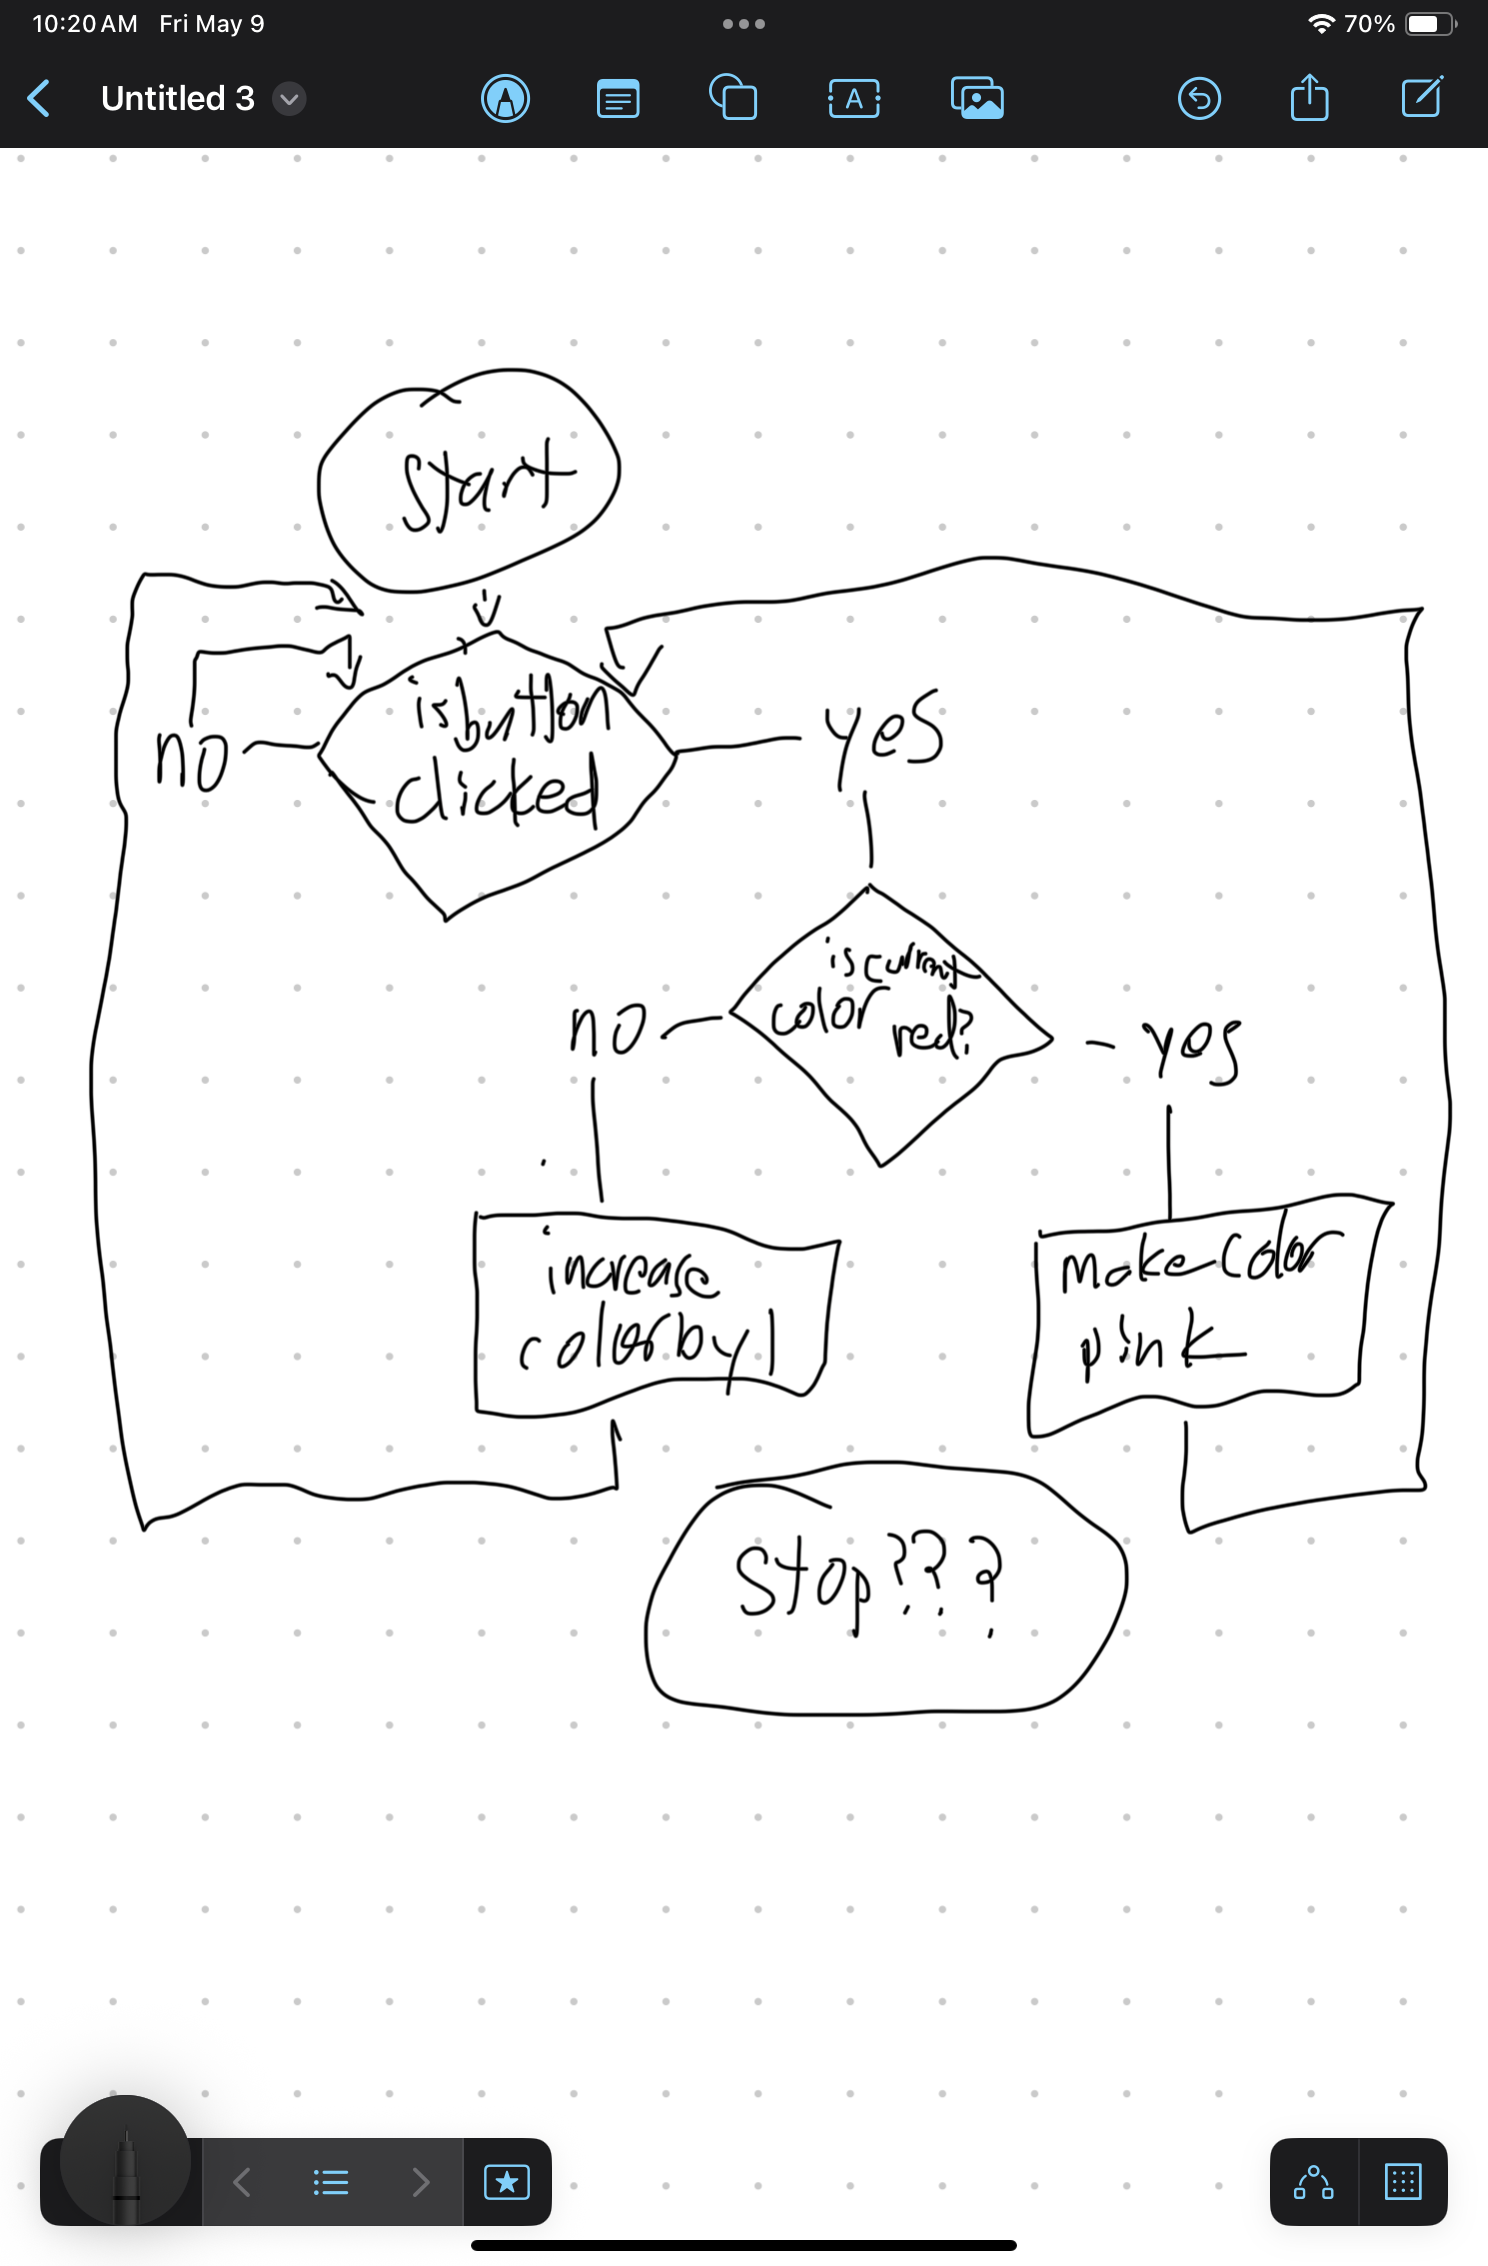 10:20 AM Fri May 9
70%
Untitled 3
A
start
is button
clicked
no
yes
is current
color
red?
no
yes
increase
color by 1
make color
pink
Stop???